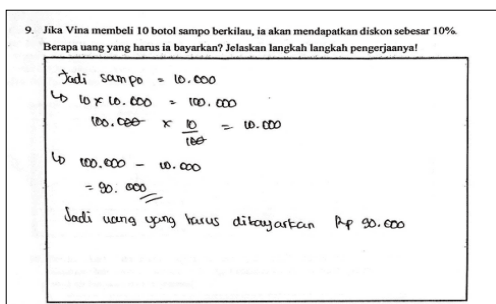 9. Jika Vina membeli 10 botol sampo berkilau, ia akan mendapatkan diskon sebesar 10%.
Berapa uang yang harus ia bayarkan? Jelaskan langkah langkah pengerjaanya!
Jadi sampo = 10.000
↳ 10 x 10.000 = 100.000
100.000 x 10/100 = 10.000
↳ 100.000 - 10.000
= 90.000
Jadi uang yang harus dibayarkan Rp 90.000